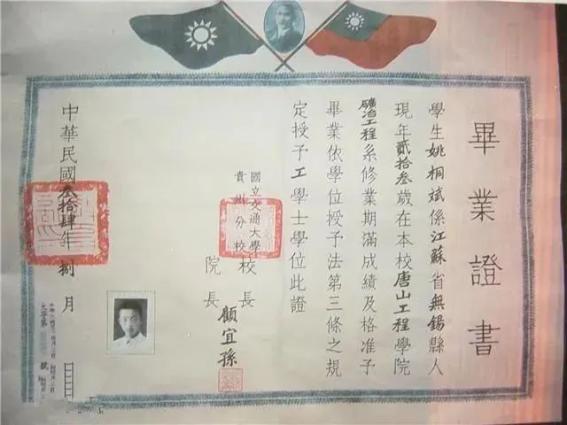 畢業證書
學生姚桐斌係江蘇省無錫縣人
現年貳拾叁歲在本校唐山工程學院
礦冶工程系修業期滿成績及格准予
畢業依學位授予法第三條之規
定授予工學士學位此證
國立交通大學
貴州分校
校長
院長
顧宜孫
中華民國叁拾肆年捌月